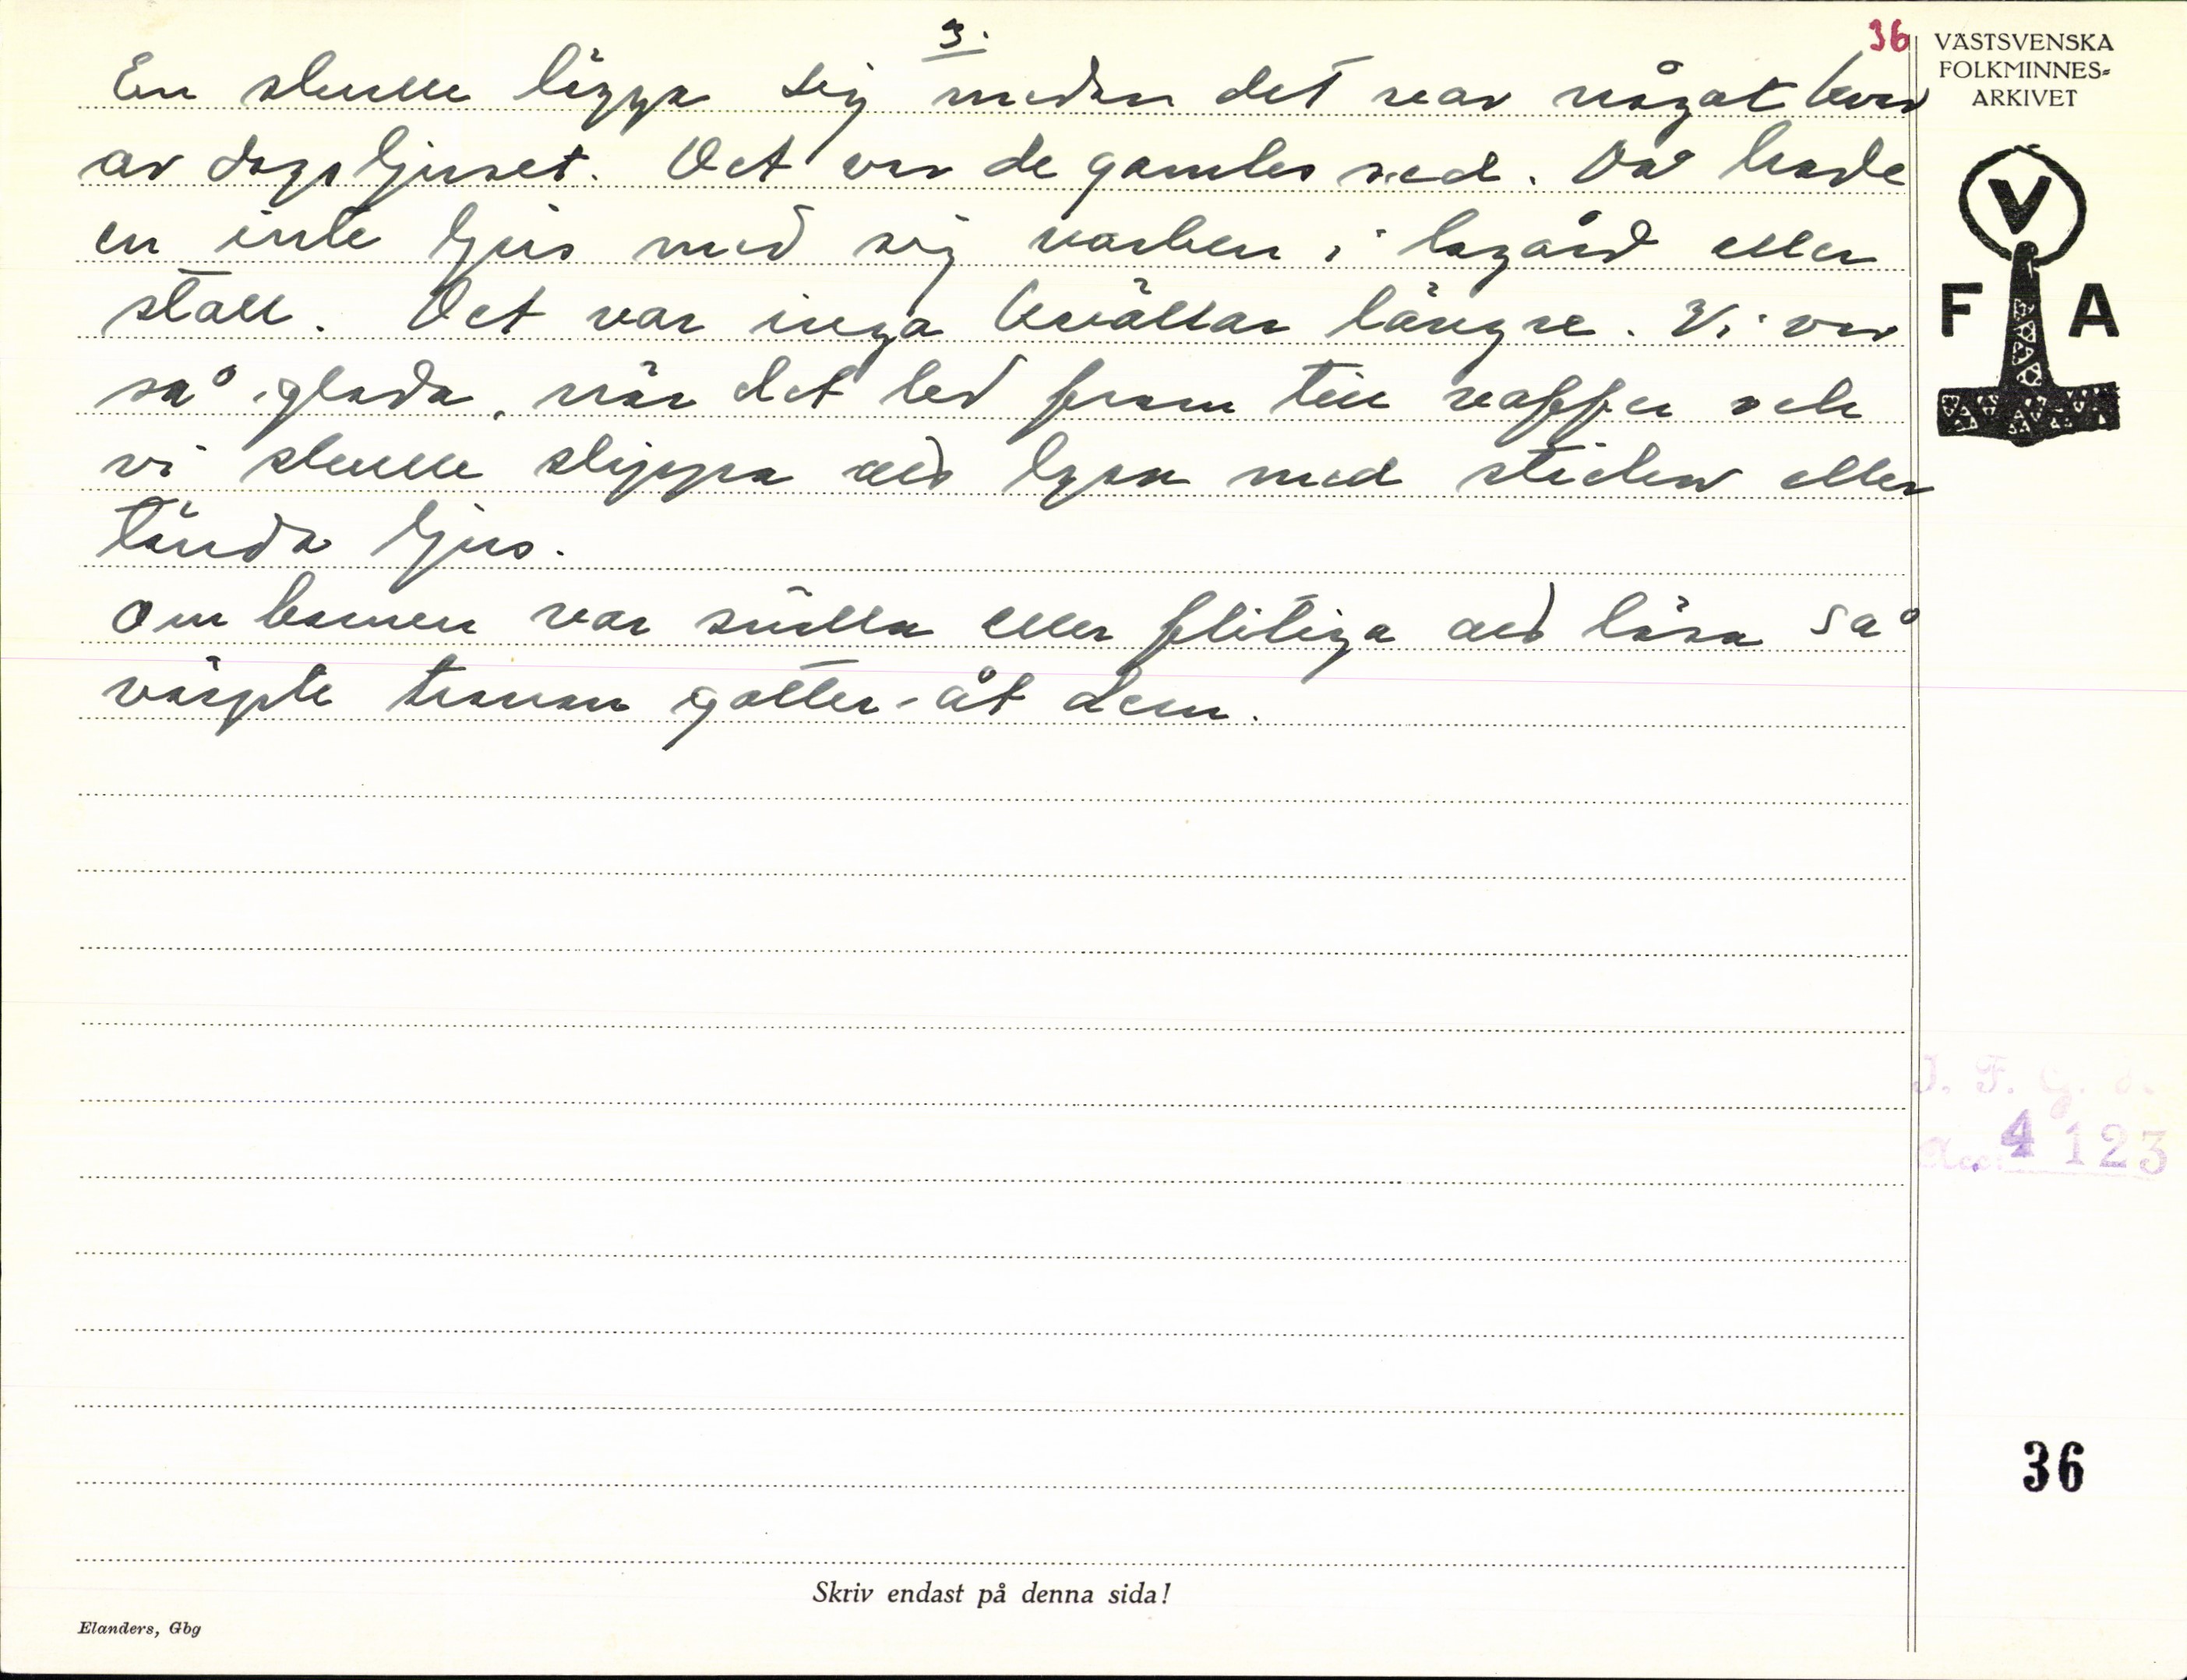 3.
36
VÄSTSVENSKA
FOLKMINNES-
ARKIVET
En skulle lägga sig medan det var något kvar
av dagsljuset. Det var de gamles sed. Då hade
en inte ljus med sig varken i lagård eller
stall. Det var inga kvällar längre. Vi var
så glada, när det led fram till vaffer och
vi skulle slippa att lysa med stickor eller
tända ljus.
Om barnen var snälla eller flitiga att läsa så
värpte tranan gotter åt dem.
V
F A
I. F. G. H.
Acc. 4123
36
Skriv endast på denna sida!
Elanders, Gbg